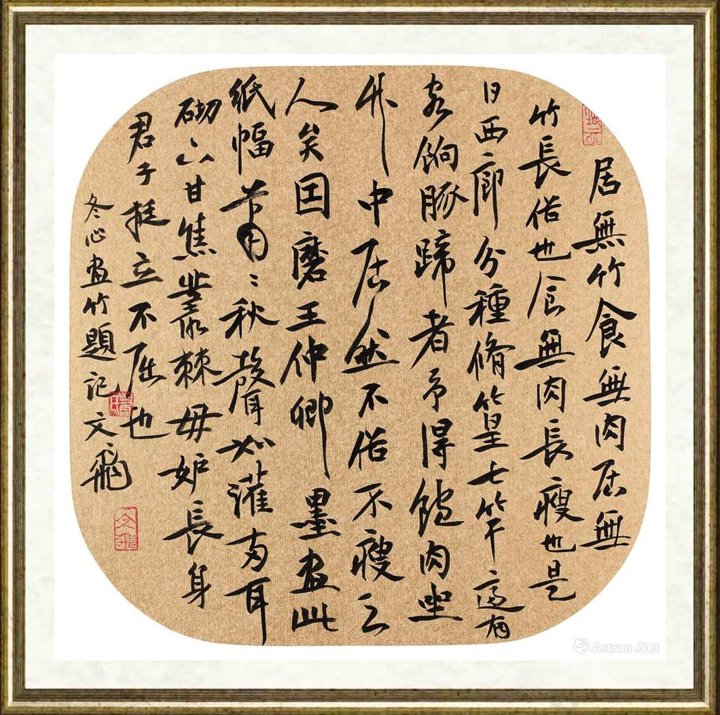 居無竹食無肉居無
竹長俗也食無肉長瘦也是
日西廊分種脩篁七竿適有
客餉豚蹄者予得飽肉坐
竹中居然不俗不瘦之
人矣因磨王仲卿墨畫此
紙幅蕭〻秋聲如灌两耳
砌下甘焦叢棘毋妒長身
君子挺立不屈也
冬心畫竹題記文飛
Artron.Net